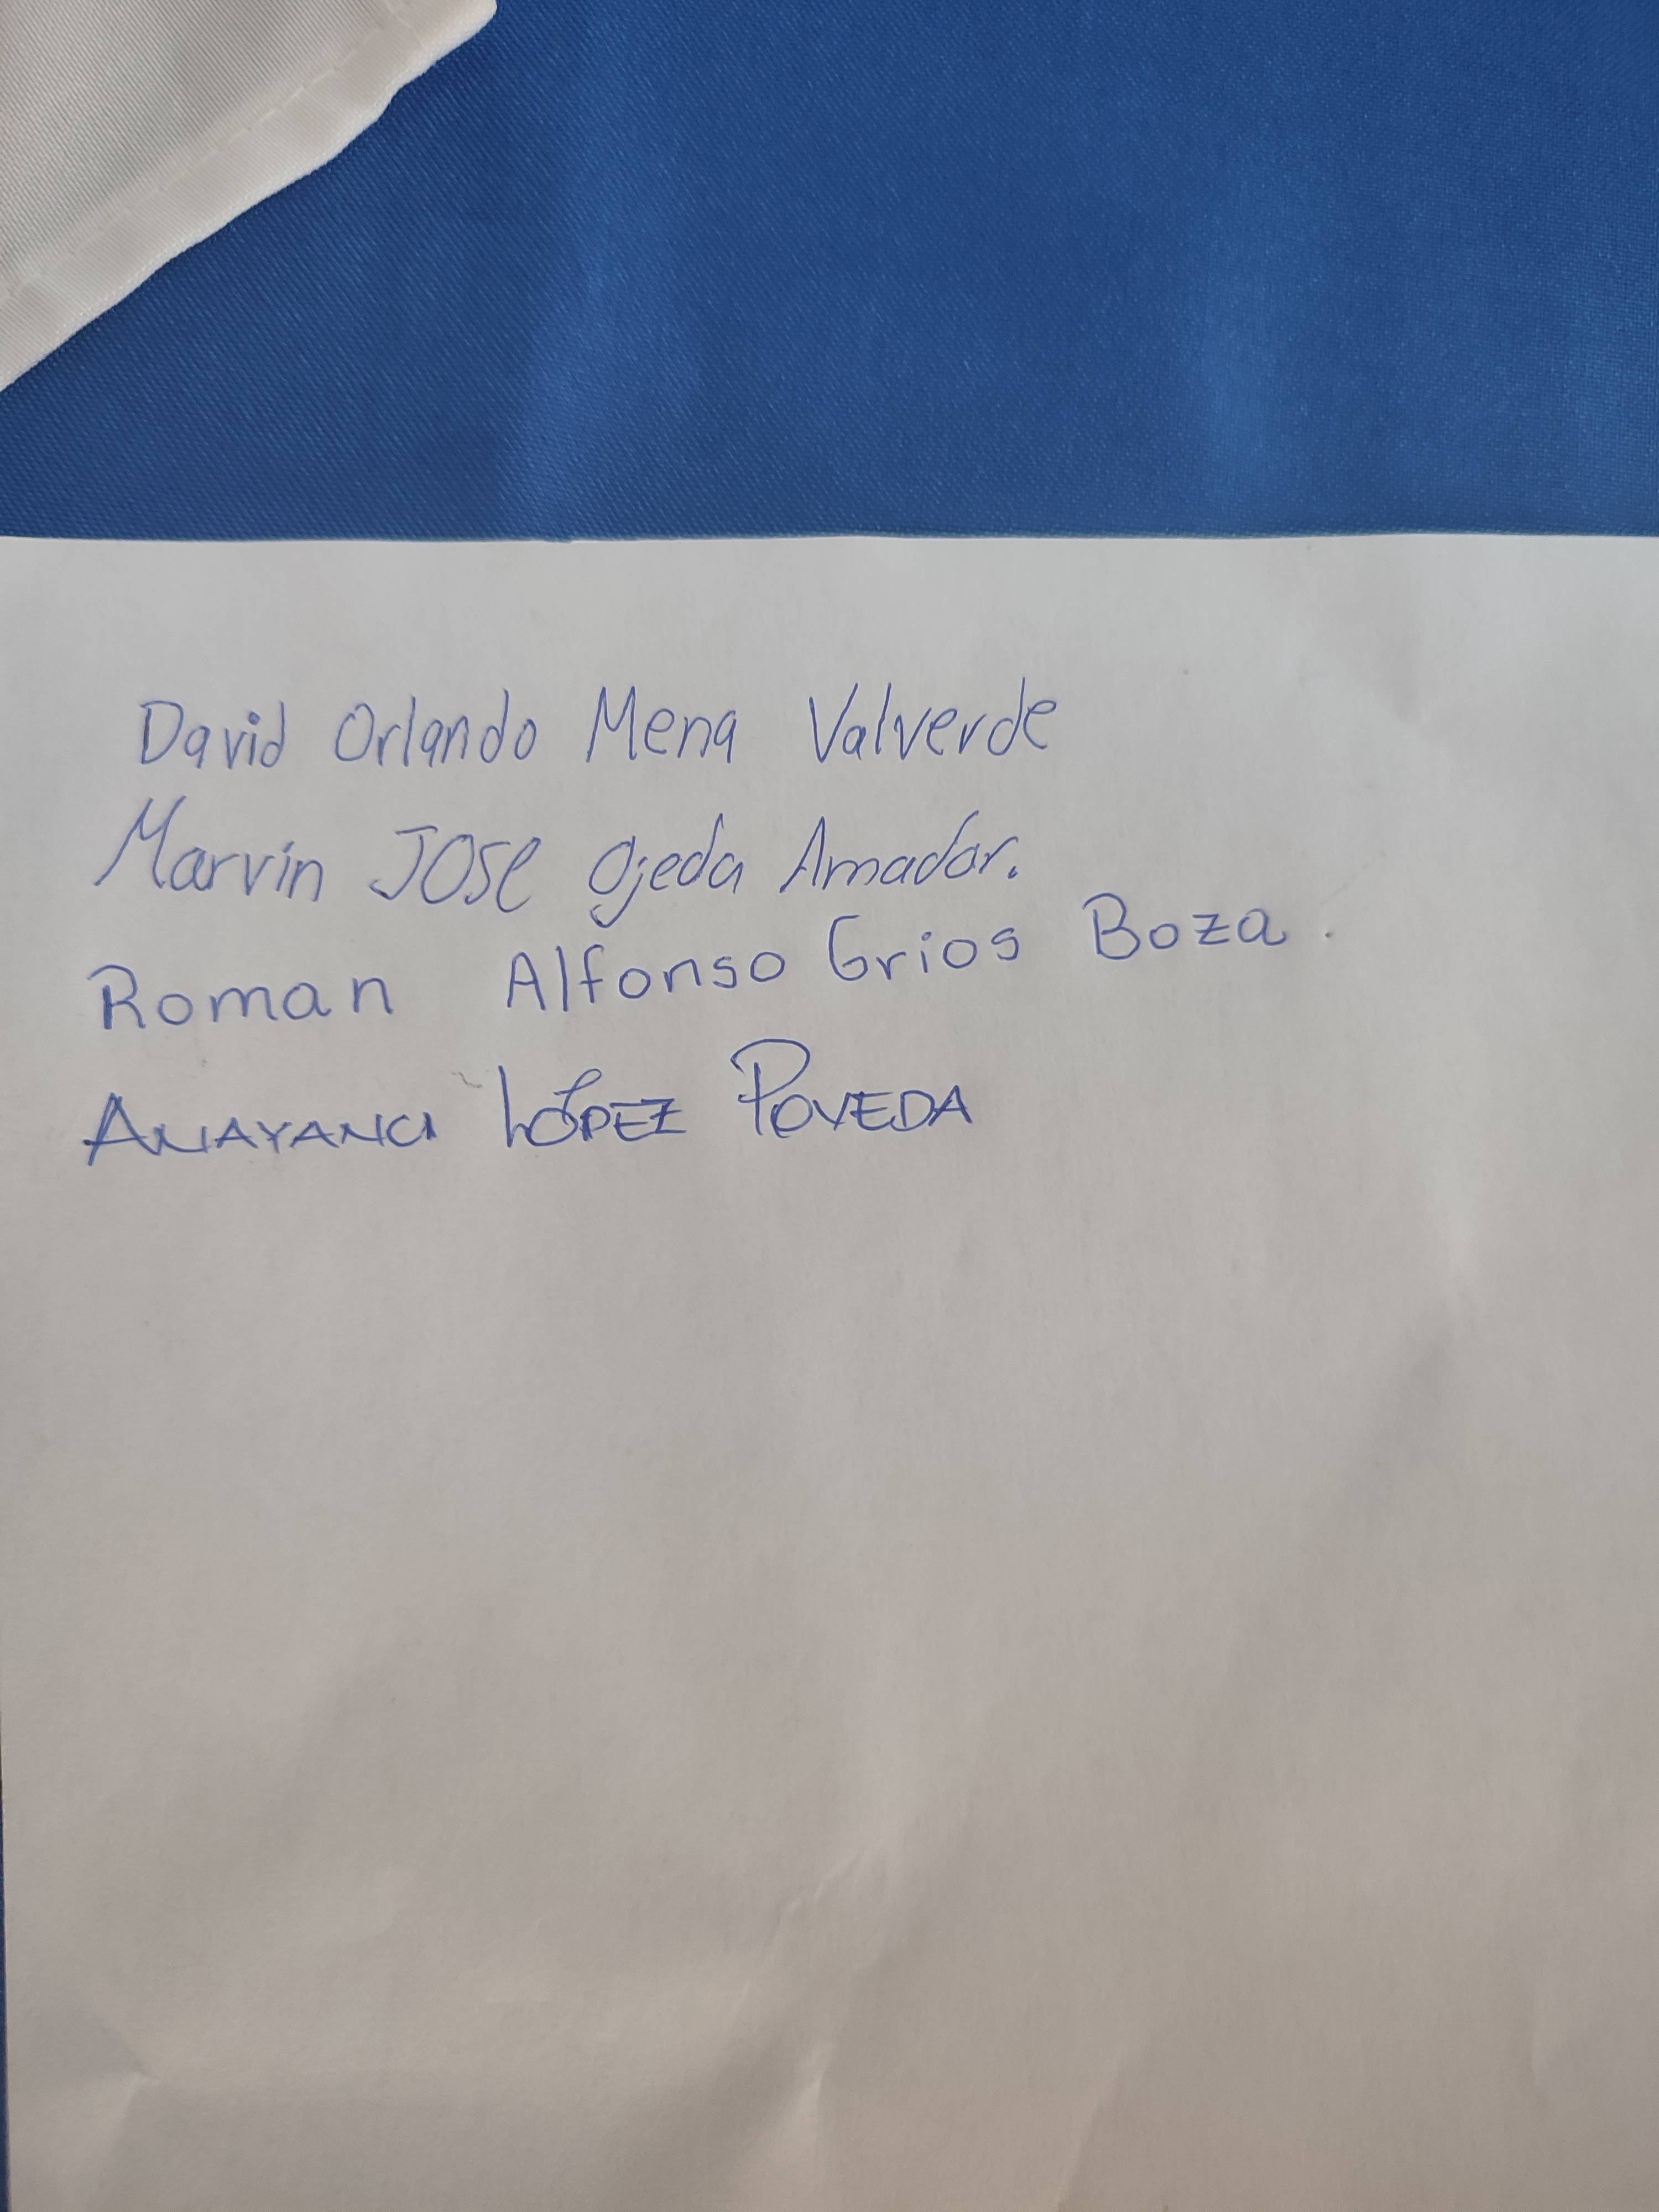 David Orlando Mena Valverde
Marvin JOSE Ojeda Amador.
Roman Alfonso Grios Boza.
ANAYANCI LÓPEZ POVEDA